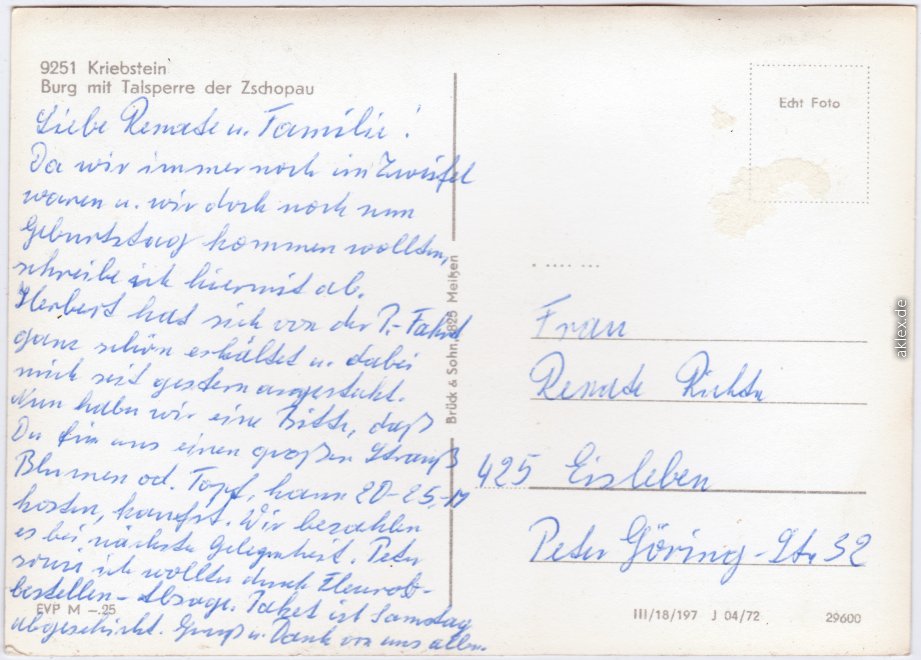 9251 Kriebstein
Burg mit Talsperre der Zschopau
Liebe Renate u. Familie!
Da wir immer noch im Zweifel
waren u. wir doch noch zum
Geburtstag kommen wollten,
schreibe ich hiermit ab.
Herbert hat sich von der P.-Fahrt
ganz schön erkältet u. dabei
mich seit gestern angesteckt.
Nun haben wir eine Bitte, daß
Du für uns einen großen Strauß
Blumen od. Topf, kann 20-25,- M
kosten, kaufst. Wir bezahlen
es bei nächster Gelegenheit. Peter
sowie ich wollten durch Fleurob-
bestellen - Absage. Paket ist Samstag
abgeschickt. Gruß u. Dank von uns allen.
EVP M -.25
Brück & Sohn, 825 Meißen
Echt Foto
Frau
Renate Richter
425 Eisleben
Peter Göring-Str 32
III/18/197 J 04/72
29600
aklex.de